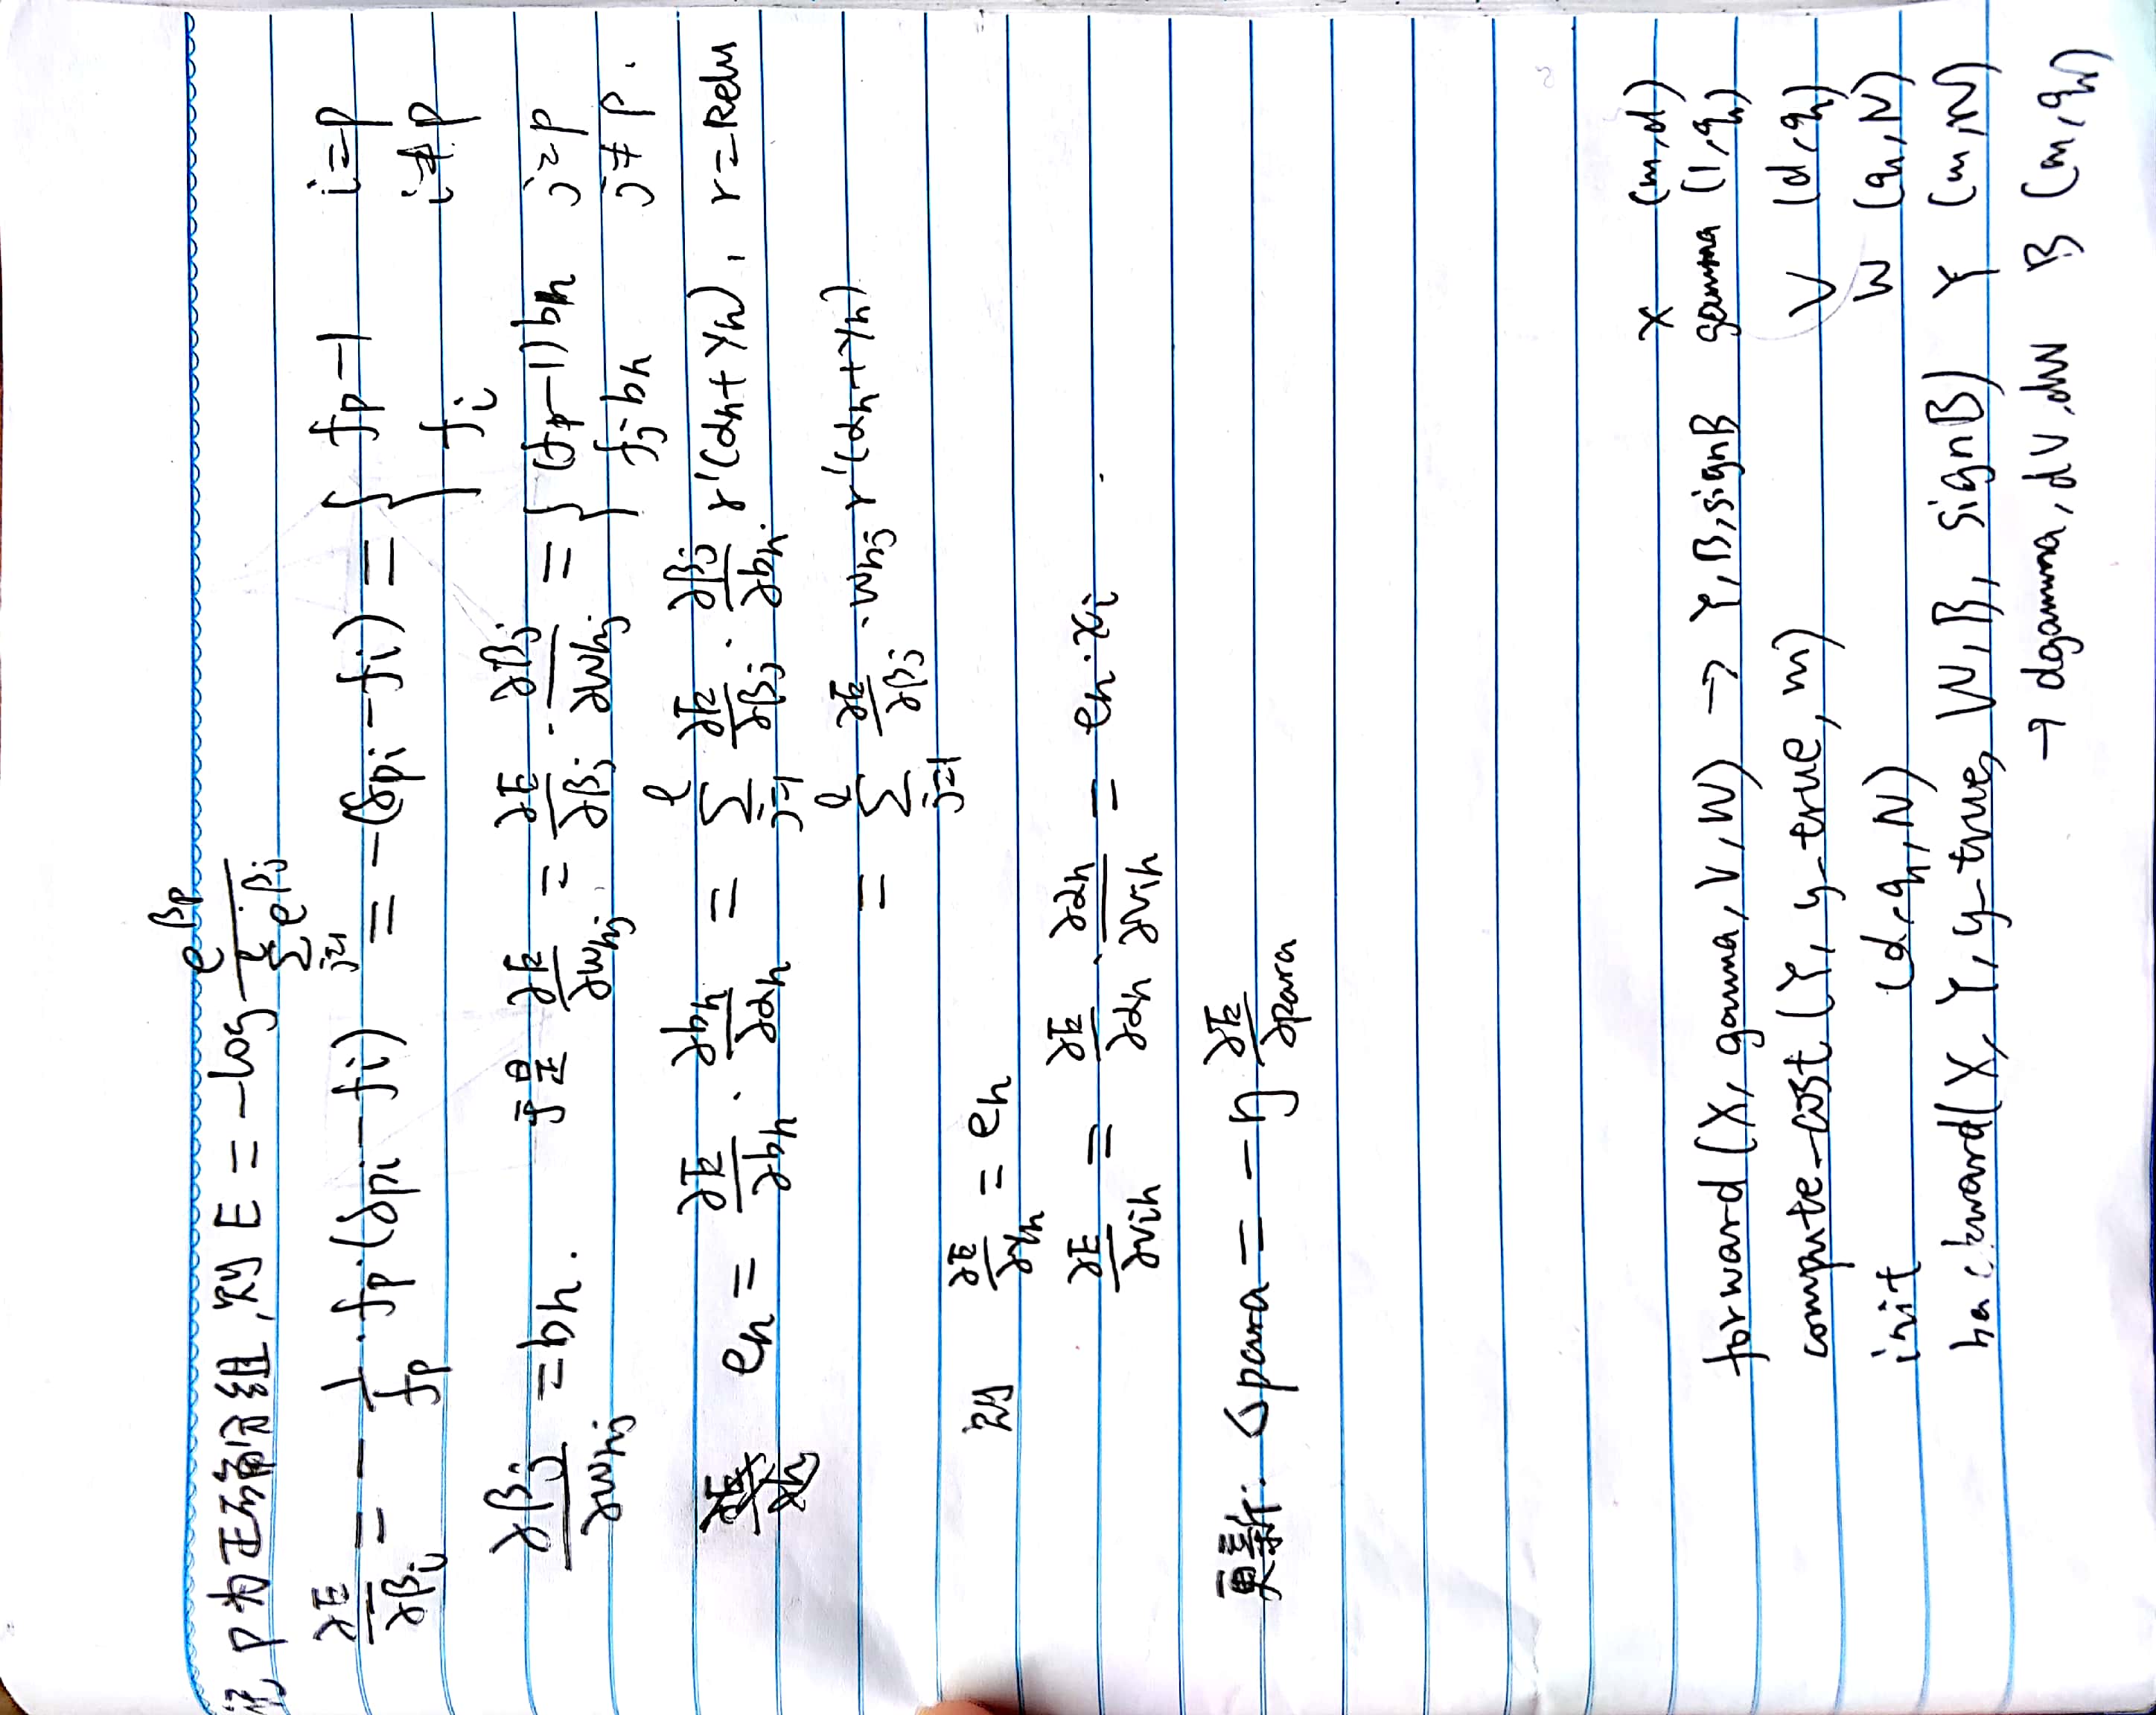 记 p为正确分组,则 E = -log e^{βp} / Σ_{j=1}^{l} e^{βj}
∂E/∂βi = - 1/fp · fp · (δpi - fi) = -(δpi - fi) = { fp-1 i=p
fi i≠p
∂βj/∂whj = bh. 于是 ∂E/∂whj = ∂E/∂βj · ∂βj/∂whj = { (fp-1)bh j=p
fj bh j≠p.
eh = ∂E/∂bh · ∂bh/∂αh = Σ_{j=1}^{l} ∂E/∂βj · ∂βj/∂bh · r'(αh+γh), r=Relu
= Σ_{j=1}^{l} ∂E/∂βj · whj r'(αh+γh)
则 ∂E/∂γh = eh
∂E/∂vih = ∂E/∂αh · ∂αh/∂vih = eh·xi
更新: Δpara = -η ∂E/∂para
X (m,d)
forward (X, gamma, V, W) → Y, B, signB gamma (1,q)
compute_cost (Y, y_true, m) V (d,q)
init (d,q,N) W (q,N)
backward(X, Y, y_true, W, B, signB) Y (m,N)
→ dgamma, dV, dW B (m,q)